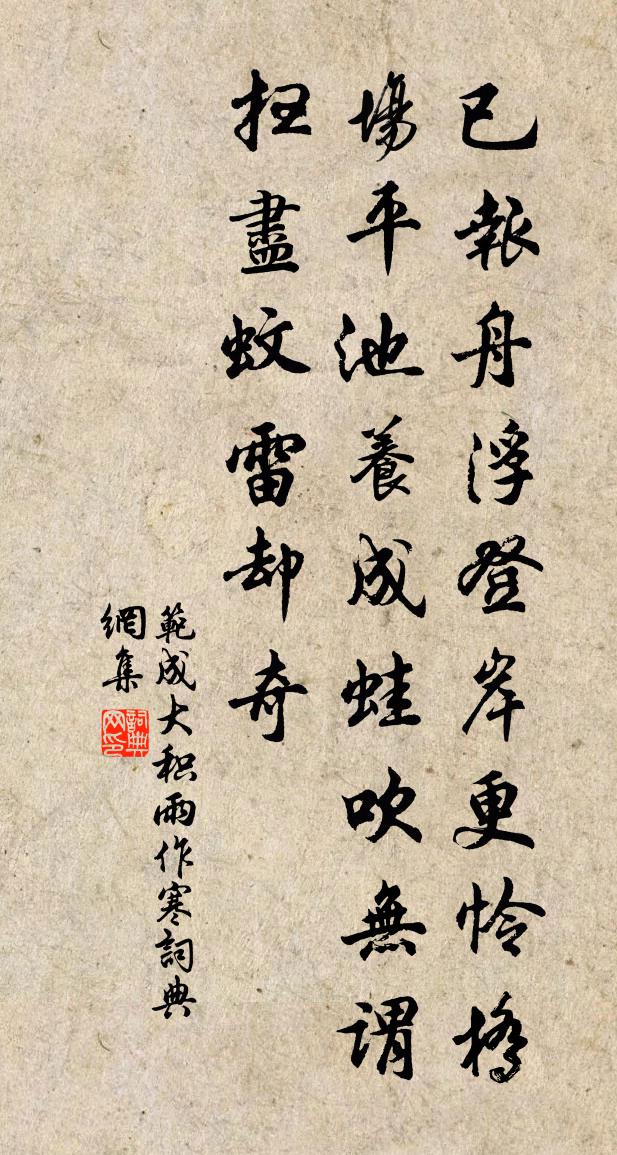 已報舟浮登岸更怜橋
塲平池養成蛙吹無謂
扫盡蚊雷却奇
範成大积雨作寒詞典
網集
詞典网印